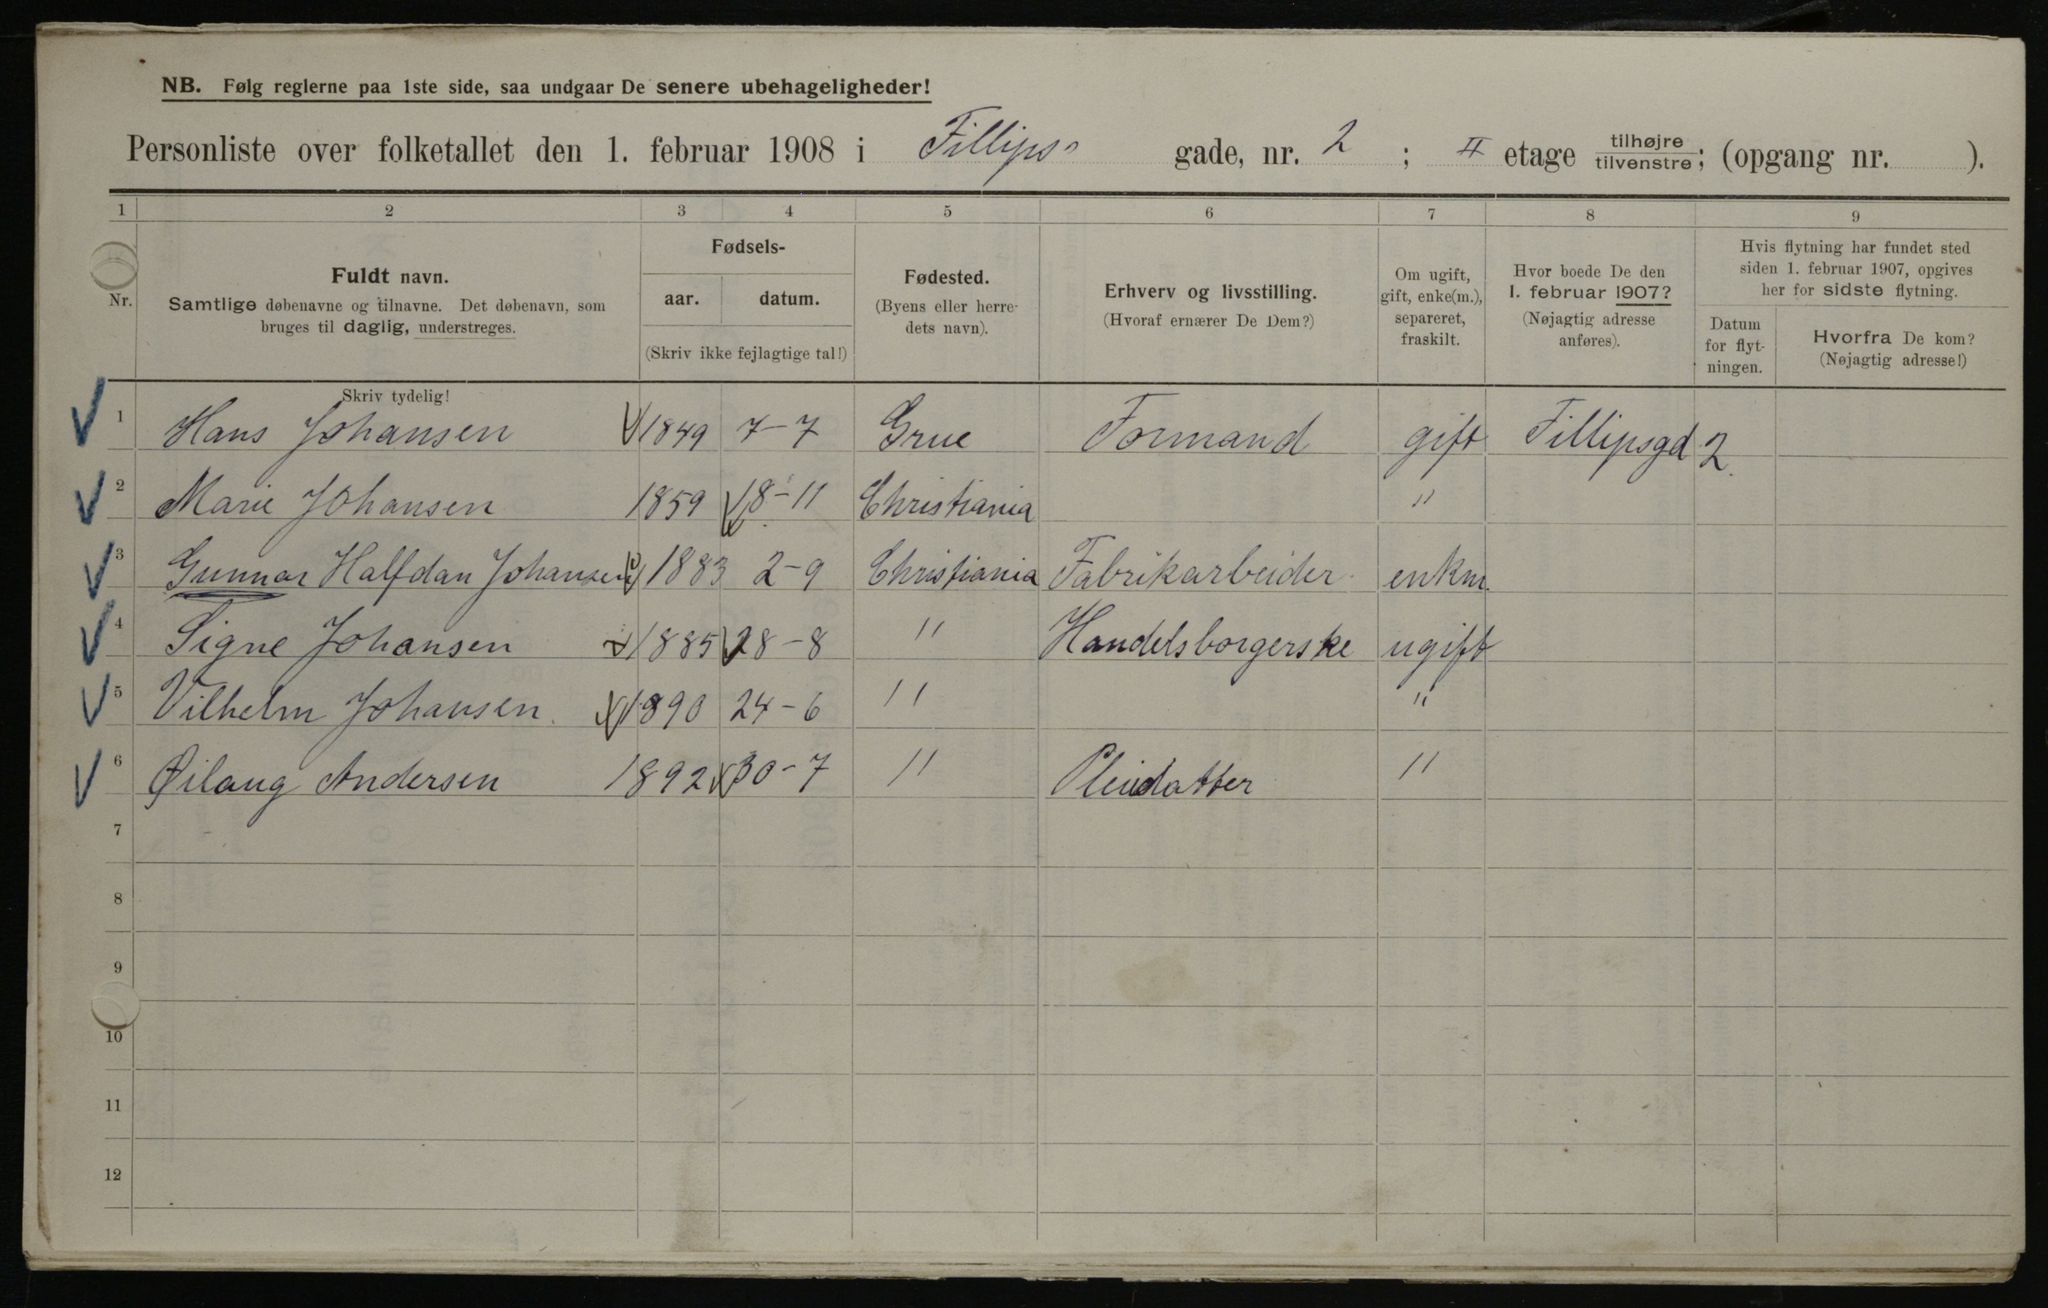 NB. Følg reglerne paa 1ste side, saa undgaar De senere ubehageligheder!
Personliste over folketallet den 1. februar 1908 i Fillips gade, nr. 2 ; II etage tilhøjre tilvenstre; (opgang nr. ).
1 2 3 4 5 6 7 8 9
Nr.
Fuldt navn.
Samtlige døbenavne og tilnavne. Det døbenavn, som
bruges til daglig, understreges.
Fødsels-
aar. datum.
(Skriv ikke fejlagtige tal!)
Fødested.
(Byens eller herre-
dets navn).
Erhverv og livsstilling.
(Hvoraf ernærer De Dem?)
Om ugift,
gift, enke(m.),
separeret,
fraskilt.
Hvor boede De den
1. februar 1907?
(Nøjagtig adresse
anføres).
Hvis flytning har fundet sted
siden 1. februar 1907, opgives
her for sidste flytning.
Datum
for flyt-
ningen.
Hvorfra De kom?
(Nøjagtig adresse!)
Skriv tydelig!
1 Hans Johansen 1849 7-7 Grue Formand gift Fillipsgd 2
2 Marie Johansen 1859 18-11 Christiania "
3 Gunnar Halfdan Johansen 1883 2-9 Christiania Fabrikarbeider enkm.
4 Signe Johansen 1885 28-8 " Handelsborgerske ugift
5 Vilhelm Johansen. 1890 24-6 " "
6 Øilaug Andersen 1892 30-7 " Pleiedatter "
7
8
9
10
11
12